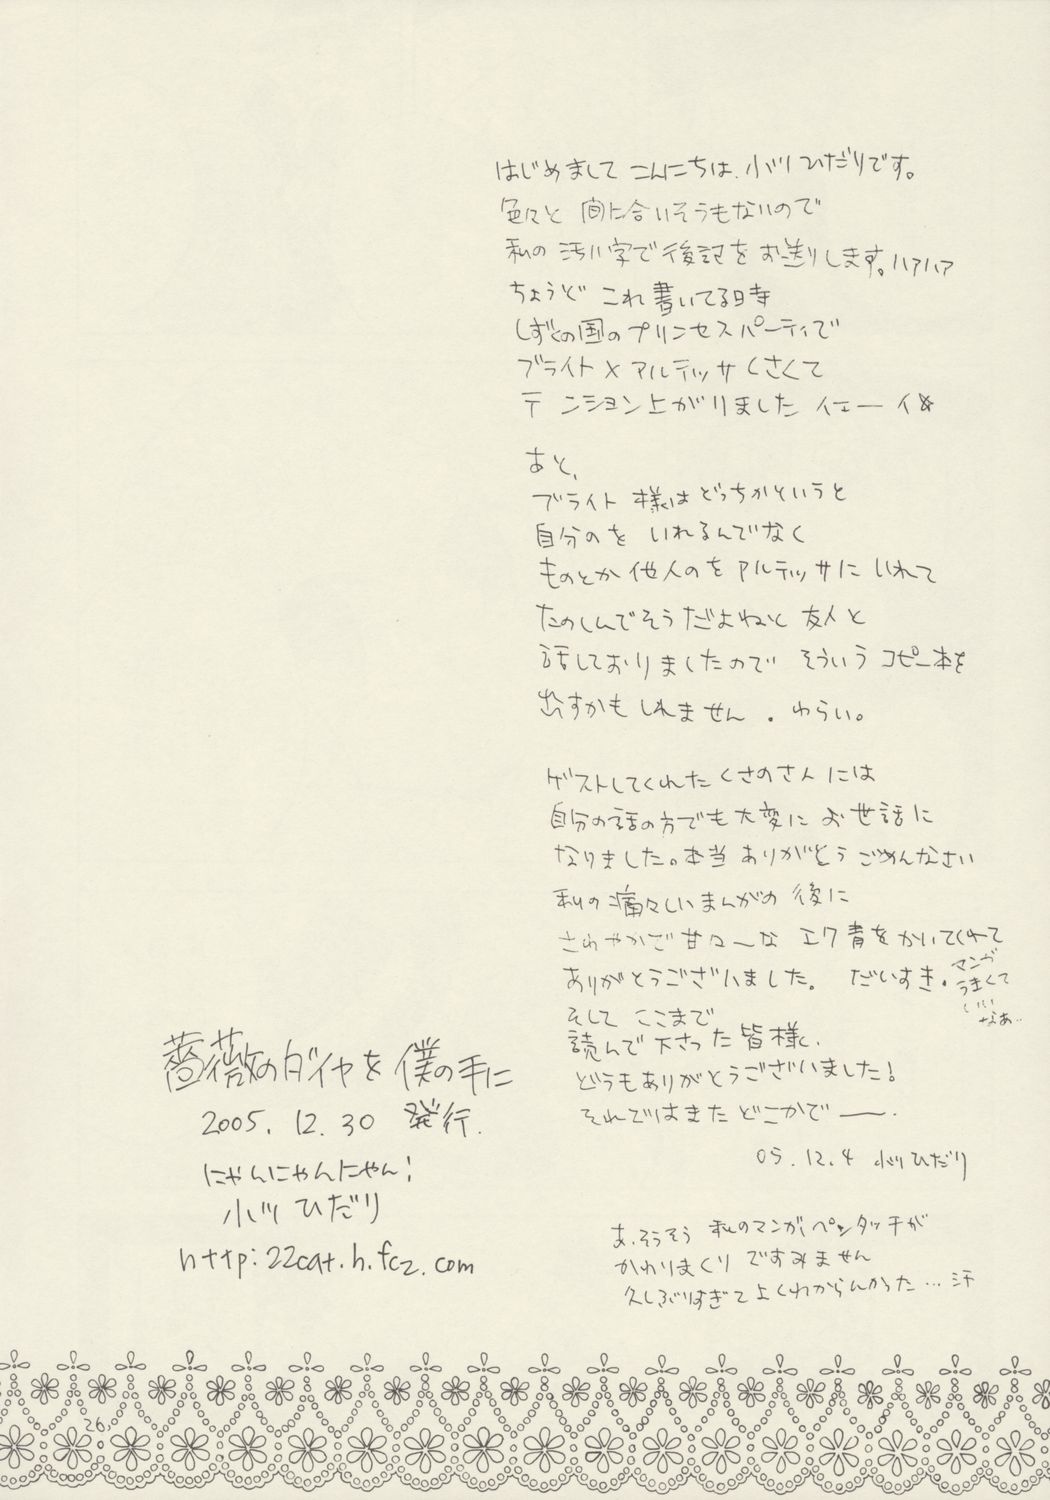 はじめまして こんにちは、小川ひだりです。
色々と 間に合いそうもないので
私の 汚い字で後記をお送りします。ハァハァ
ちょうど これ書いてる時
しずくの国のプリンセスパーティで
ブライト×アルテッサくさくて
テンション上がりました イエーイ☆
あと、
ブライト様はどっちかというと
自分のを いれるんでなく
ものとか他人のをアルテッサに いれて
たのしんでそうだよねと 友人と
話しておりましたので そういう コピー本を
出すかもしれません 。わらい。
ゲストしてくれた くさのさんには
自分の話の方でも大変に お世話に
なりました。本当 ありがとう ごめんなさい
私の痛々しいまんがの 後に
さわやかで甘々〜な エク青をかいてくれて
ありがとうございました。 だいすき。
マンガ
うまくて
いい
なあ..
そして ここまで
読んで下さった皆様、
どうもありがとうございました!
それではまた どこかで――.
05.12.4 小川ひだり
あ、そうそう 私のマンガ、ペンタッチが
かわりまくり ですみません
久しぶりすぎて よくわからんかった…汗
薔薇のダイヤを僕の手に
2005.12.30 発行.
にゃんにゃんにゃん!
小川 ひだり
http:22cat.h.fc2.com
26